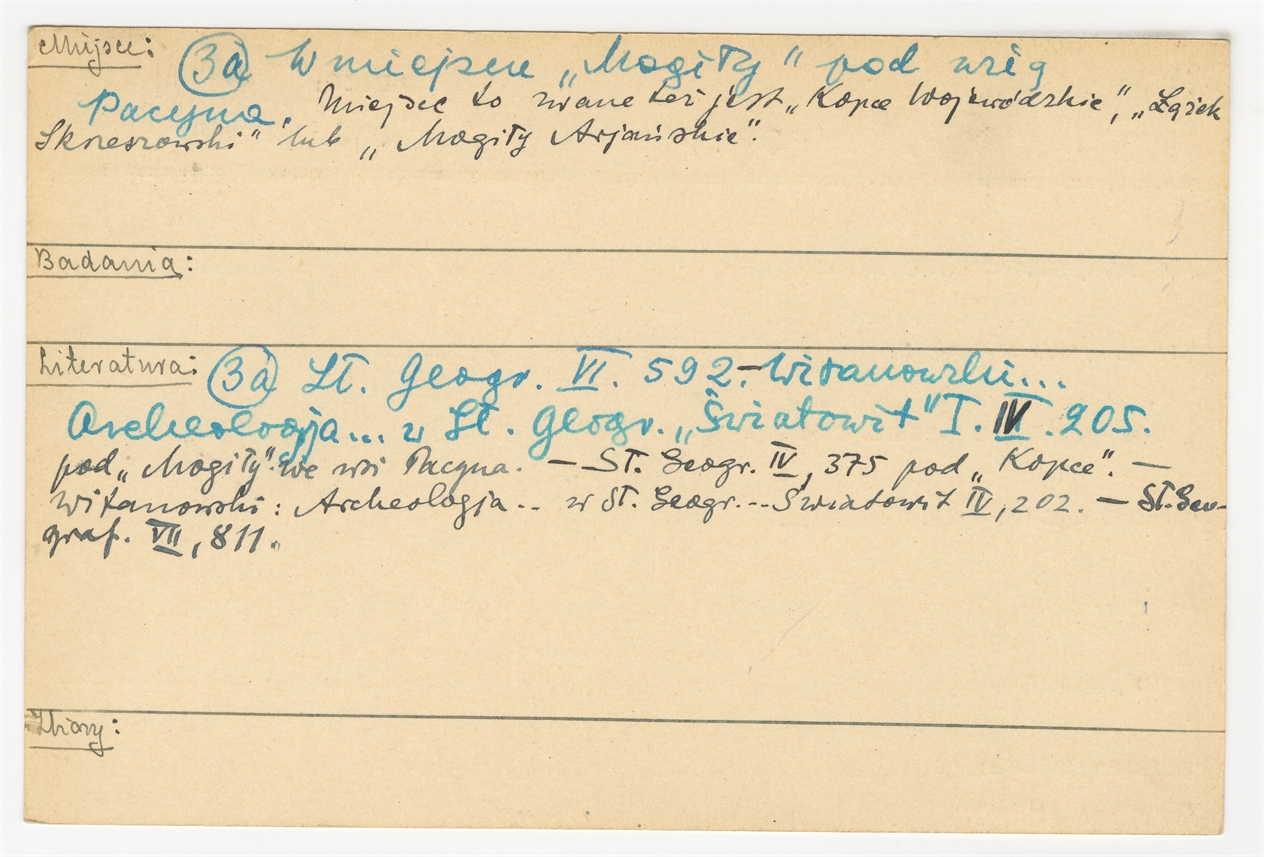 Miejsce: (3a) W miejscu „Mogiły" pod wsią
Pacyna. Miejsce to zwane też jest „Kopce Wojewódzkie", „Łącek
Skrzeszewski" lub „Mogiły Arjańskie".
Badania:
Literatura: (3a) Sł. Geogr. VI. 592. – Witanowski...
Archeologja... w Sł. Geogr. „Światowit" T. IV. 205.
pod „Mogiły". We wsi Pacyna. – Sł. Geogr. IV, 375 pod „Kopce". –
Witanowski: Archeologja.. w Sł. Geogr... Światowit IV, 202. – Sł. Geo-
graf. VII, 811.
Zbiory: